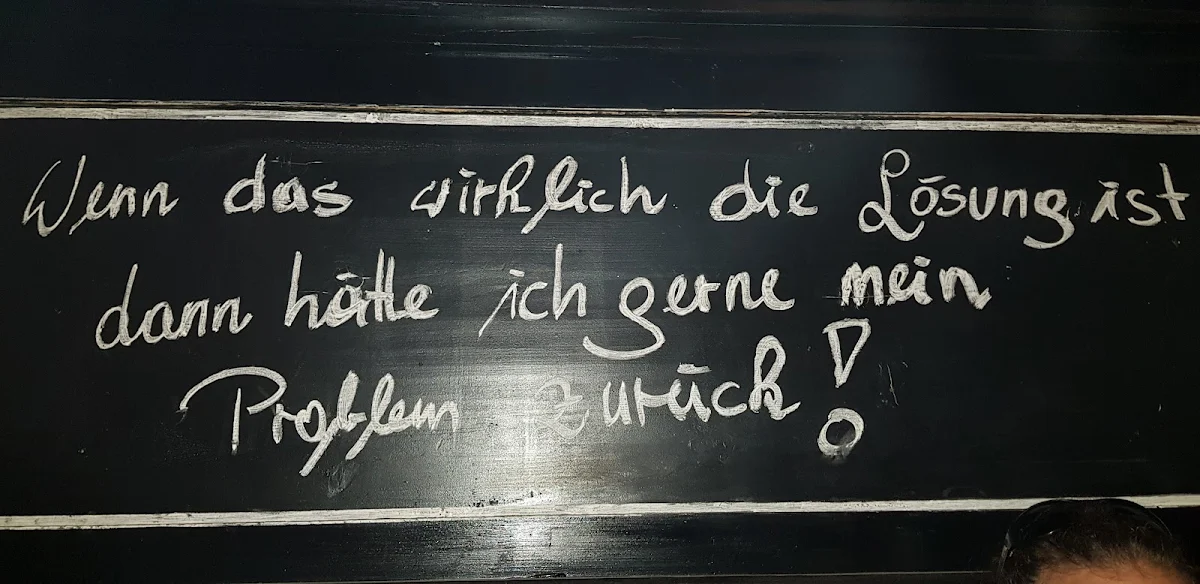 Wenn das wirklich die Lösung ist
dann hätte ich gerne mein
Problem zurück!